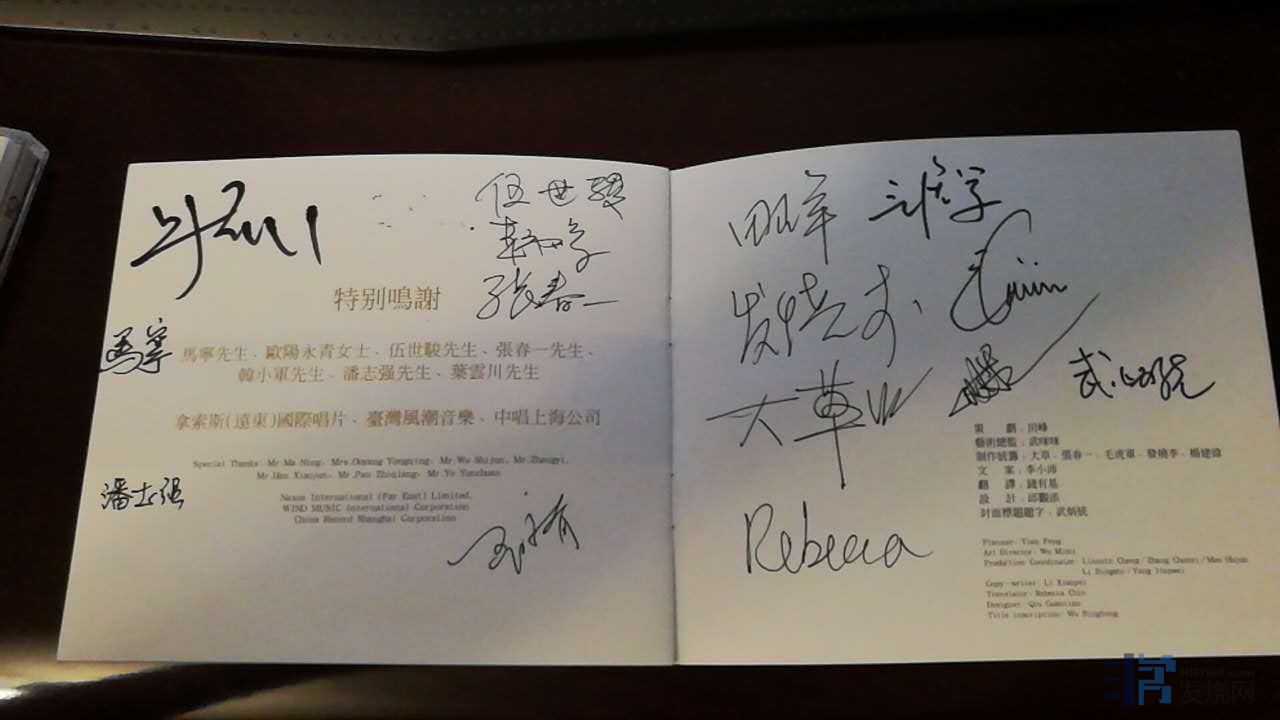 伍世骏
张春一
特别鳴謝
馬寧
馬寧先生、歐陽永青女士、伍世駿先生、張春一先生、
韓小軍先生、潘志强先生、葉雲川先生
拿索斯(遠東)國際唱片、臺灣風潮音樂、中唱上海公司
Special Thanks: Mr.Ma Ning, Mrs.Ouyang Yongqing, Mr.Wu Shijun, Mr.
Mr.Han Xiaojun, Mr.Pan Zhiqiang, Mr.Ye Yunchuan
Naxos International (Far East) Limited,
WIND MUSIC International Corporation
China Record Shanghai Corporation
潘志强
田峰
发烧李
大草
Rebecca
策 劃：田峰
藝術總監：武咪咪
制作統籌：大草、張春一、毛虎軍、發燒李、楊建偉
文 案：李小沛
翻 譯：錢有基
設 計：邱觀添
封面標題題字：武炳統
Planner: Tian Feng
Art Director: Wu Mimi
Copy-writer: Li Xiaopei
Translator: Rebecca Chin
Designer: Qiu Guantian
Title inscription: Wu Bingtong
HIFI168.com
发烧网